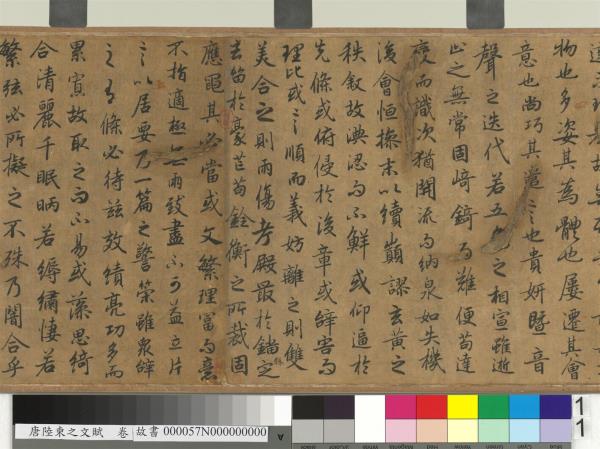 物也多姿其為體也屢遷其會
意也尚巧其遣言也貴妍暨音
聲之迭代若五色之相宣雖逝
止之無常固崎錡而難便苟達
變而識次猶開流而納泉如失機
後會恒操末以續顛謬玄黃之
秩叙故淟涊而不鮮或仰逼於
先條或俯侵於後章或辭害而
理比或言順而義妨離之則雙
美合之則兩傷考殿最於錙銖定
去留於豪芒苟銓衡之所裁固
應繩其必當或文繁理富而意
不指適極無兩致盡不可益立片
言以居要乃一篇之警策雖眾辭
之有條必待茲效績亮功多而
累寡故取足而不易或藻思綺
合清麗千眠炳若縟繡悽若
繁絃必所擬之不殊乃闇合乎
唐陸柬之文賦 卷 故書 000057N000000000
A
11